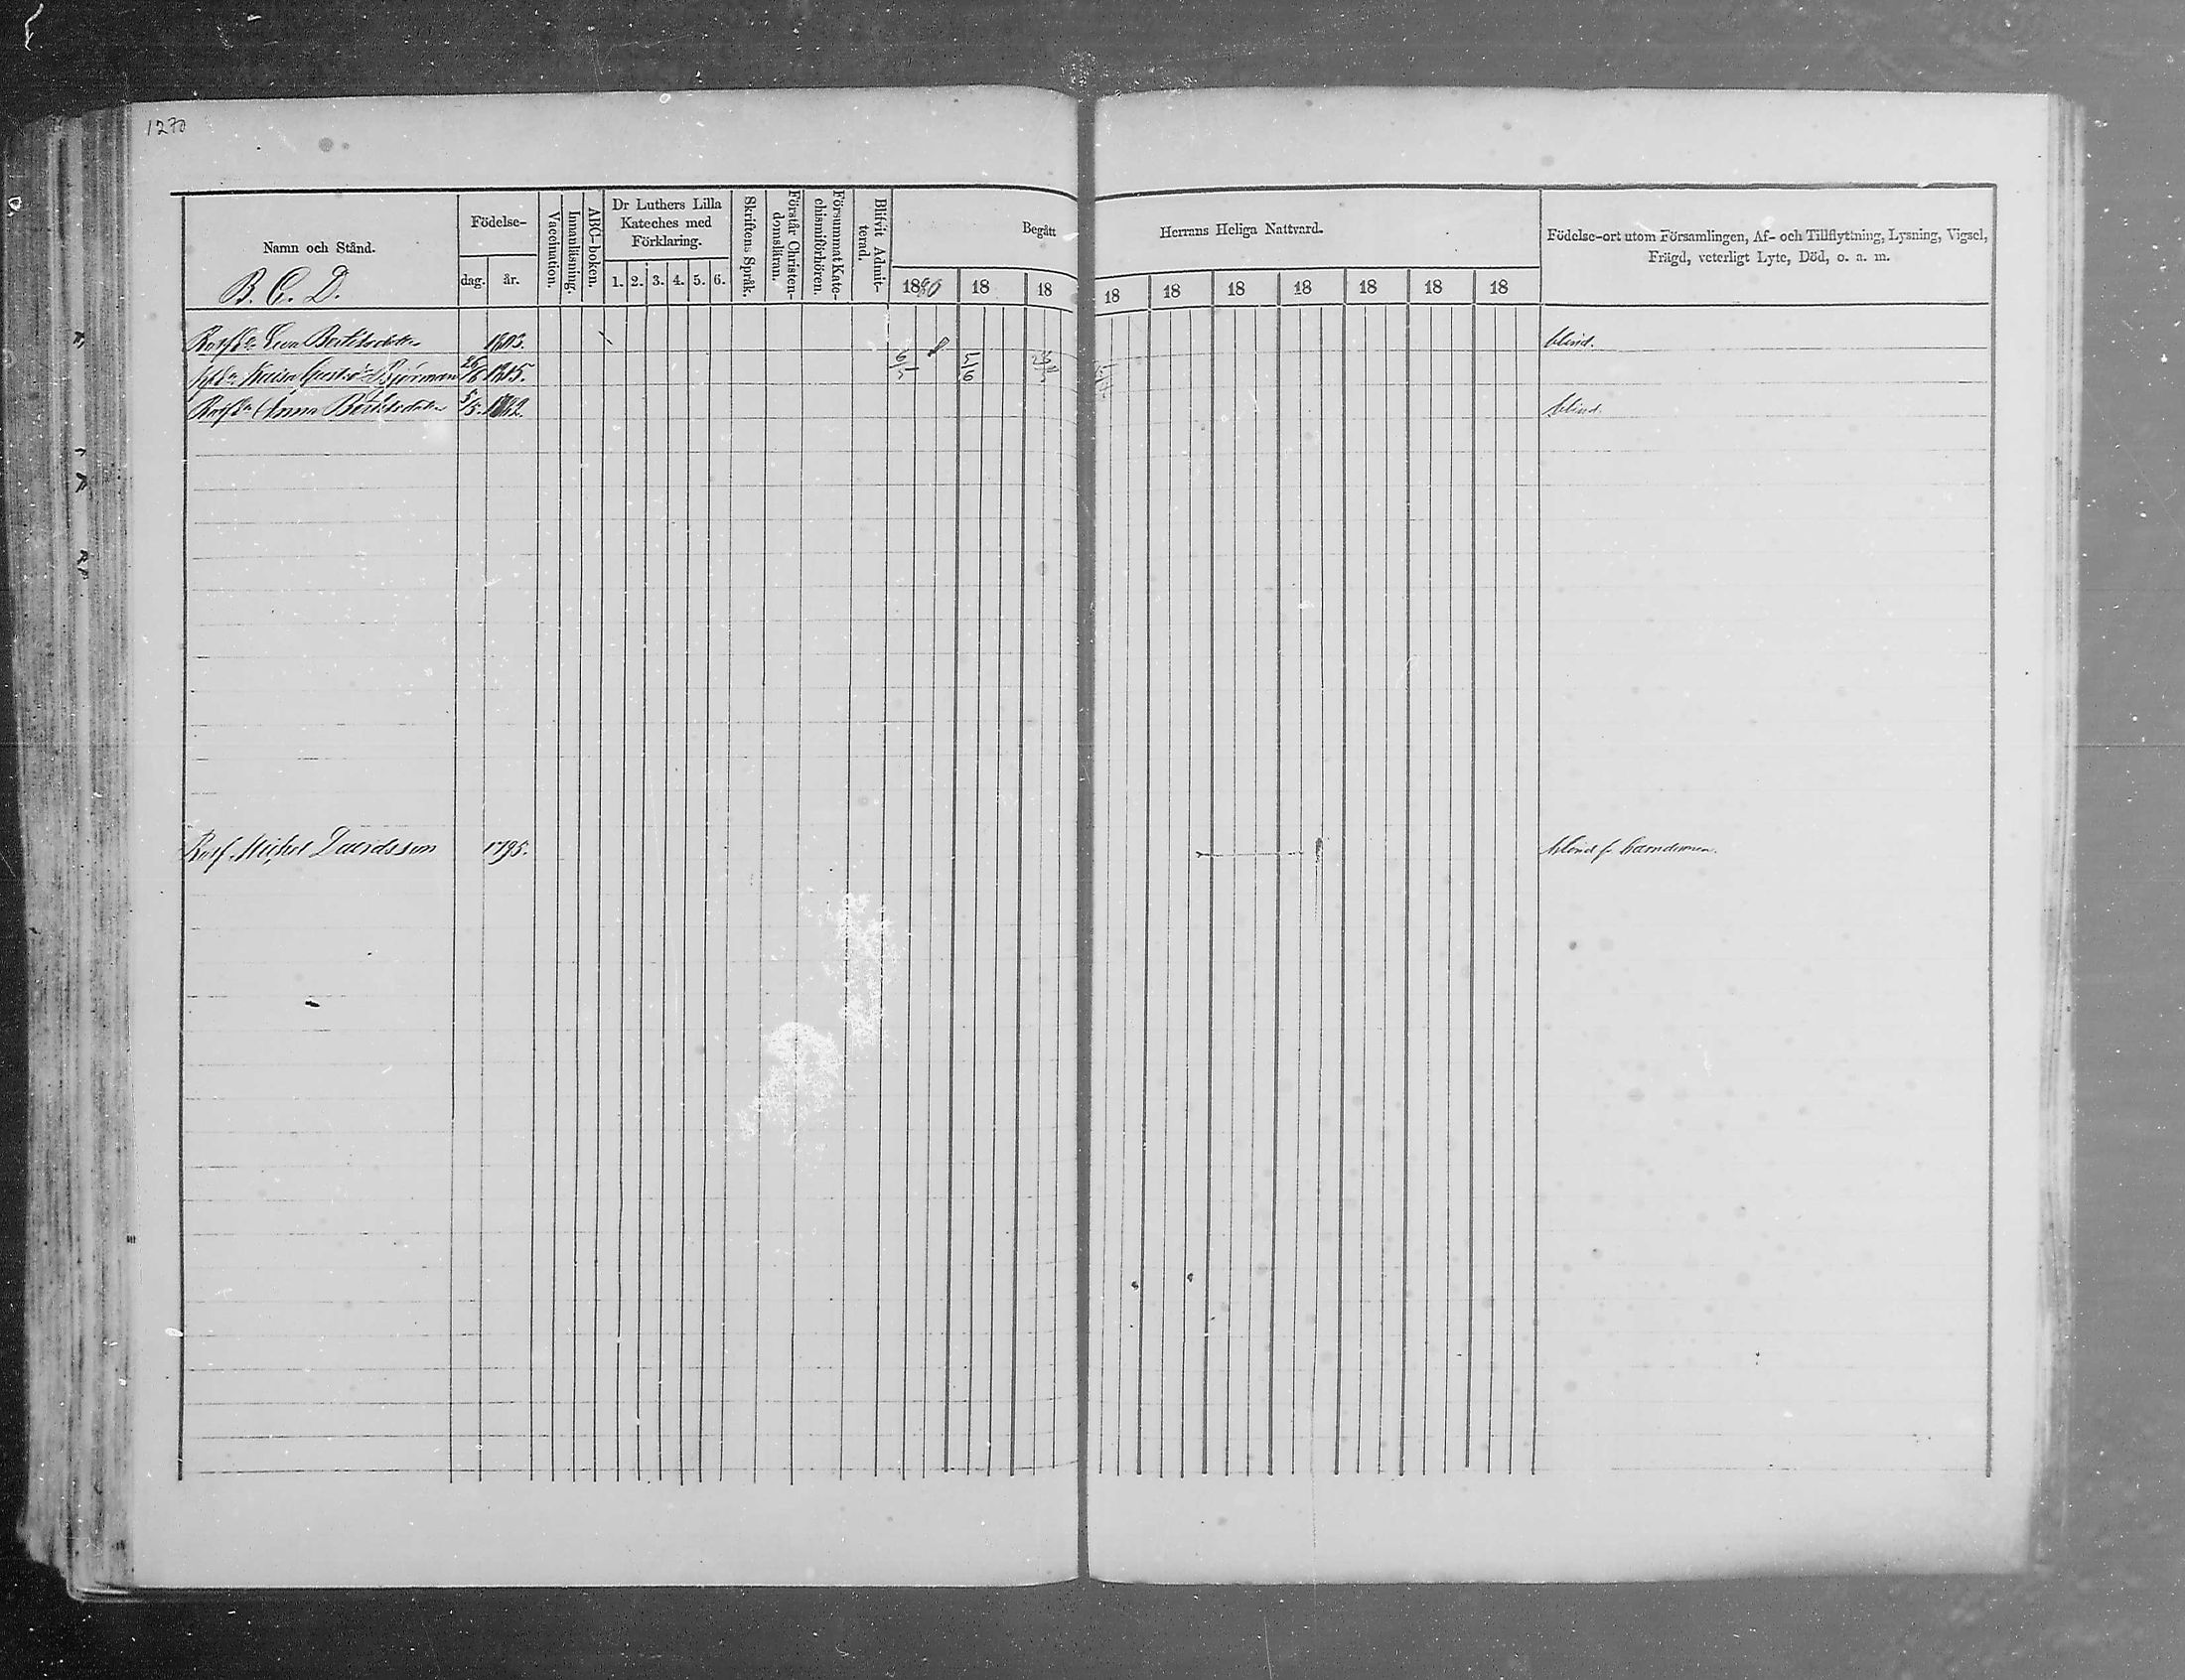 1270
Namn och Stånd.
B. C. D.
Födelse-
dag.
år.
Vaccination.
Innanläsning.
ABC-boken.
Dr Luthers Lilla
Kateches med
Förklaring.
1. 2. 3. 4. 5. 6.
Skriftens Språk.
Förstår Christen-
domsläran.
Försummat Kate-
chismiförhören.
Blifvit Admit-
terad.
Begått Herrans Heliga Nattvard.
1860 18 18 18 18 18 18 18 18 18
Födelse-ort utom Församlingen, Af- och Tillflyttning, Lysning, Vigsel,
Frägd, veterligt Lyte, Död, o. a. m.
Eva Bertilsdotter 1803. blind.
Kaisa Björman 26/6 1815.
Anna Bertilsdotter 5/5. blind.
Michel Davidsson 1795. blind